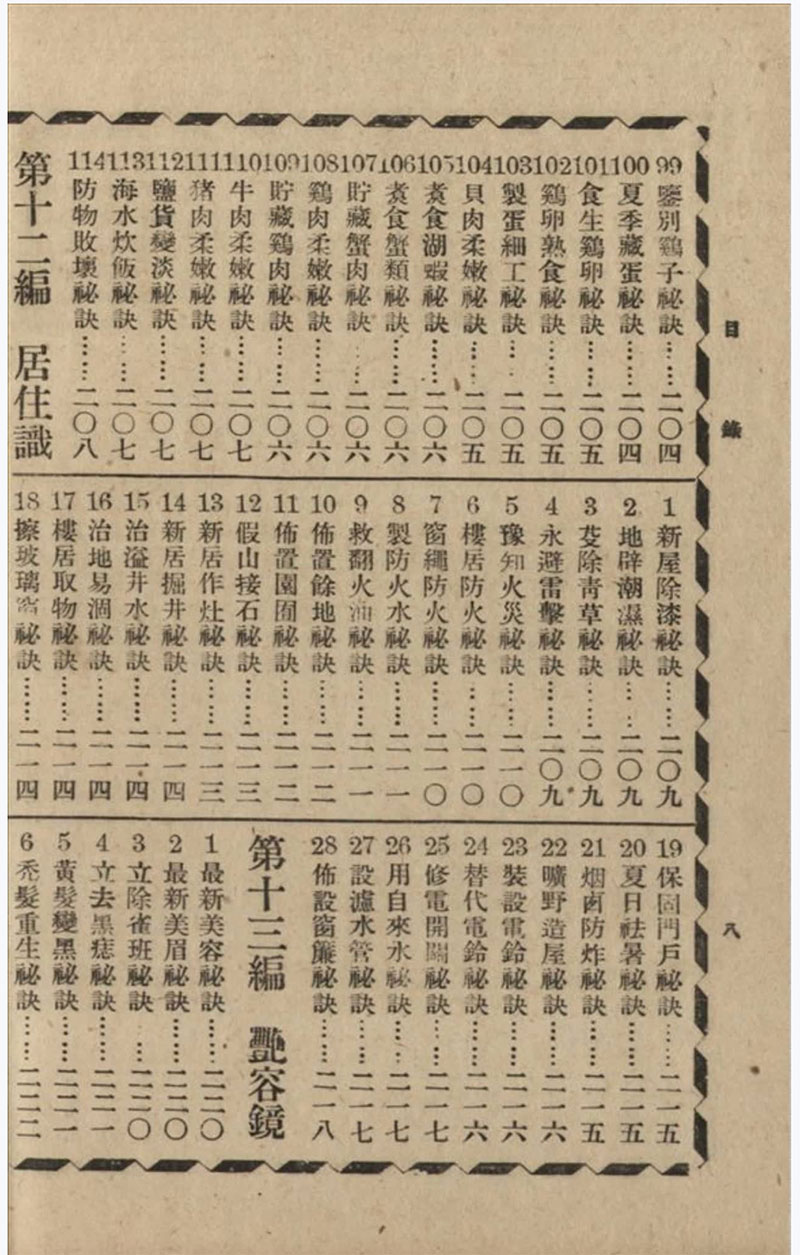 目錄
八
99 鑒別鷄子祕訣……二〇四
100 夏季藏蛋祕訣……二〇四
101 食生鷄卵祕訣……二〇五
102 鷄卵熟食祕訣……二〇五
103 製蛋細工祕訣……二〇五
104 貝肉柔嫩祕訣……二〇五
105 煮食湖蝦祕訣……二〇六
106 煮食蟹類祕訣……二〇六
107 貯藏蟹肉祕訣……二〇六
108 鷄肉柔嫩祕訣……二〇六
109 貯藏鷄肉祕訣……二〇六
110 牛肉柔嫩祕訣……二〇七
111 猪肉柔嫩祕訣……二〇七
112 鹽貨變淡祕訣……二〇七
113 海水炊飯祕訣……二〇七
114 防物敗壞祕訣……二〇八
第十二編 居住識
1 新屋除漆祕訣……二〇九
2 地辟潮濕祕訣……二〇九
3 芟除靑草祕訣……二〇九
4 永避雷擊祕訣……二〇九
5 豫知火災祕訣……二一〇
6 樓居防火祕訣……二一〇
7 窗繩防火祕訣……二一〇
8 製防火水祕訣……二一一
9 救翻火油祕訣……二一一
10 佈置餘地祕訣……二一二
11 佈置園囿祕訣……二一二
12 假山接石祕訣……二一三
13 新居作灶祕訣……二一三
14 新居掘井祕訣……二一四
15 治溢井水祕訣……二一四
16 治地易涸祕訣……二一四
17 樓居取物祕訣……二一四
18 擦玻璃窗祕訣……二一四
19 保固門戶祕訣……二一五
20 夏日祛暑祕訣……二一五
21 烟囱防炸祕訣……二一五
22 曠野造屋祕訣……二一六
23 裝設電鈴祕訣……二一六
24 替代電鈴祕訣……二一六
25 修電開關祕訣……二一七
26 用自來水祕訣……二一七
27 設濾水管祕訣……二一七
28 佈設窗簾祕訣……二一八
第十三編 艷容鏡
1 最新美容祕訣……二二〇
2 最新美眉祕訣……二二〇
3 立除雀班祕訣……二二〇
4 立去黑痣祕訣……二二一
5 黃髮變黑祕訣……二二一
6 禿髮重生祕訣……二二二